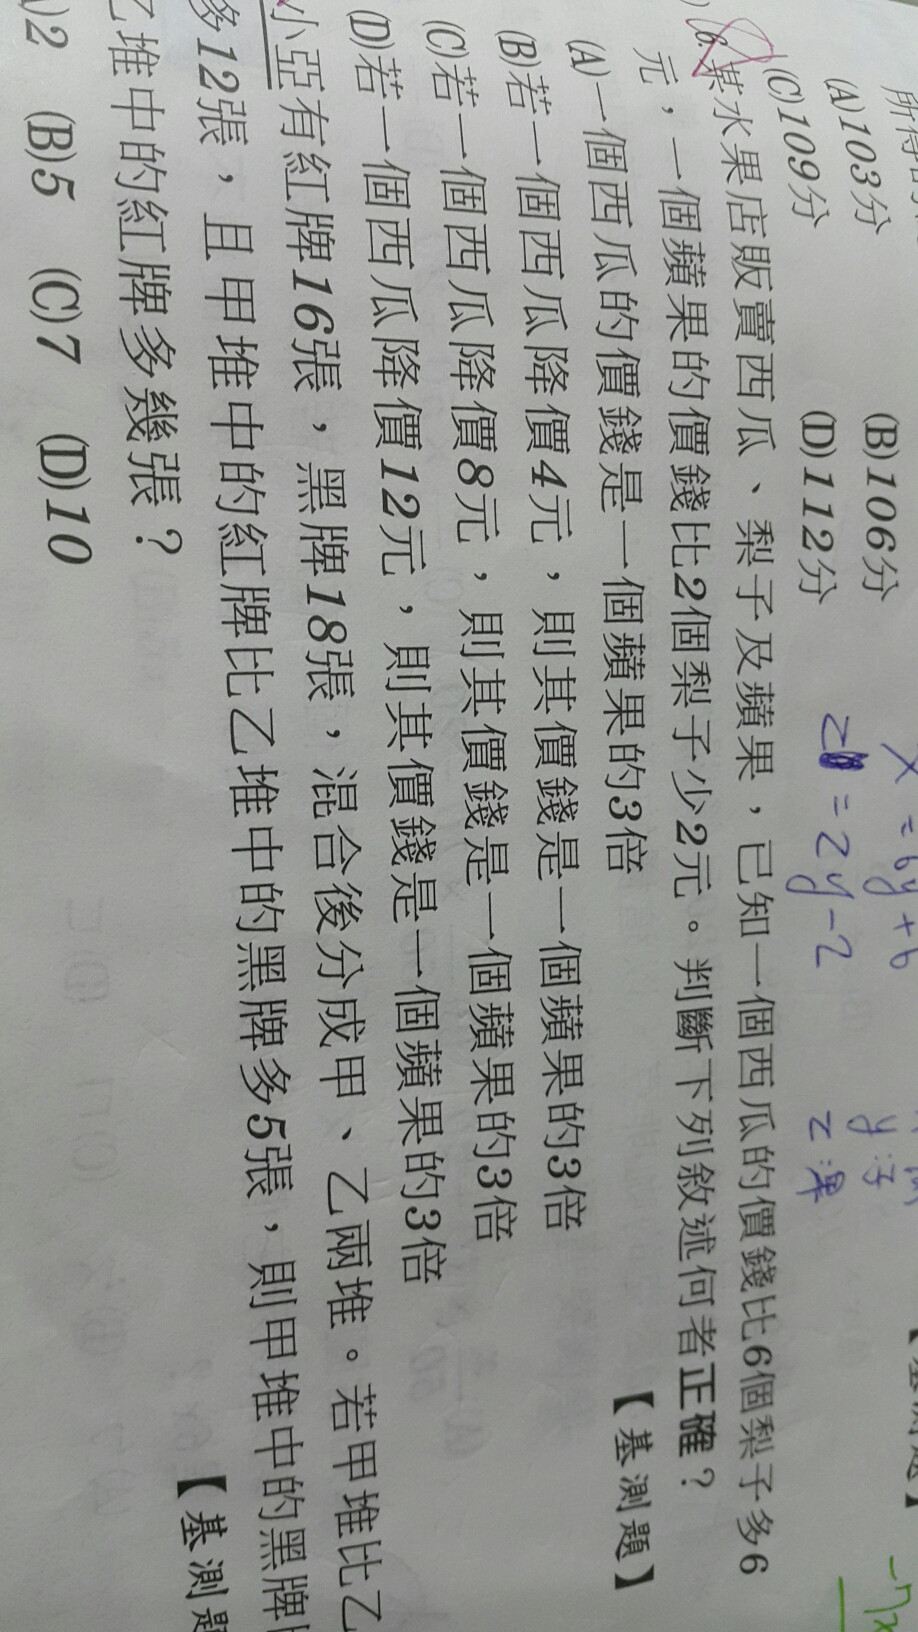 所得
(A)103分 (B)106分
(C)109分 (D)112分
x=6y+6
z=2y-2
y:子
z:果
6.某水果店販賣西瓜、梨子及蘋果，已知一個西瓜的價錢比6個梨子多6
元，一個蘋果的價錢比2個梨子少2元。判斷下列敘述何者正確？
(A)一個西瓜的價錢是一個蘋果的3倍 【基測題】
(B)若一個西瓜降價4元，則其價錢是一個蘋果的3倍
(C)若一個西瓜降價8元，則其價錢是一個蘋果的3倍
(D)若一個西瓜降價12元，則其價錢是一個蘋果的3倍
小亞有紅牌16張，黑牌18張，混合後分成甲、乙兩堆。若甲堆比乙
多12張，且甲堆中的紅牌比乙堆中的黑牌多5張，則甲堆中的黑牌
乙堆中的紅牌多幾張？ 【基測題
)2 (B)5 (C)7 (D)10
-7x